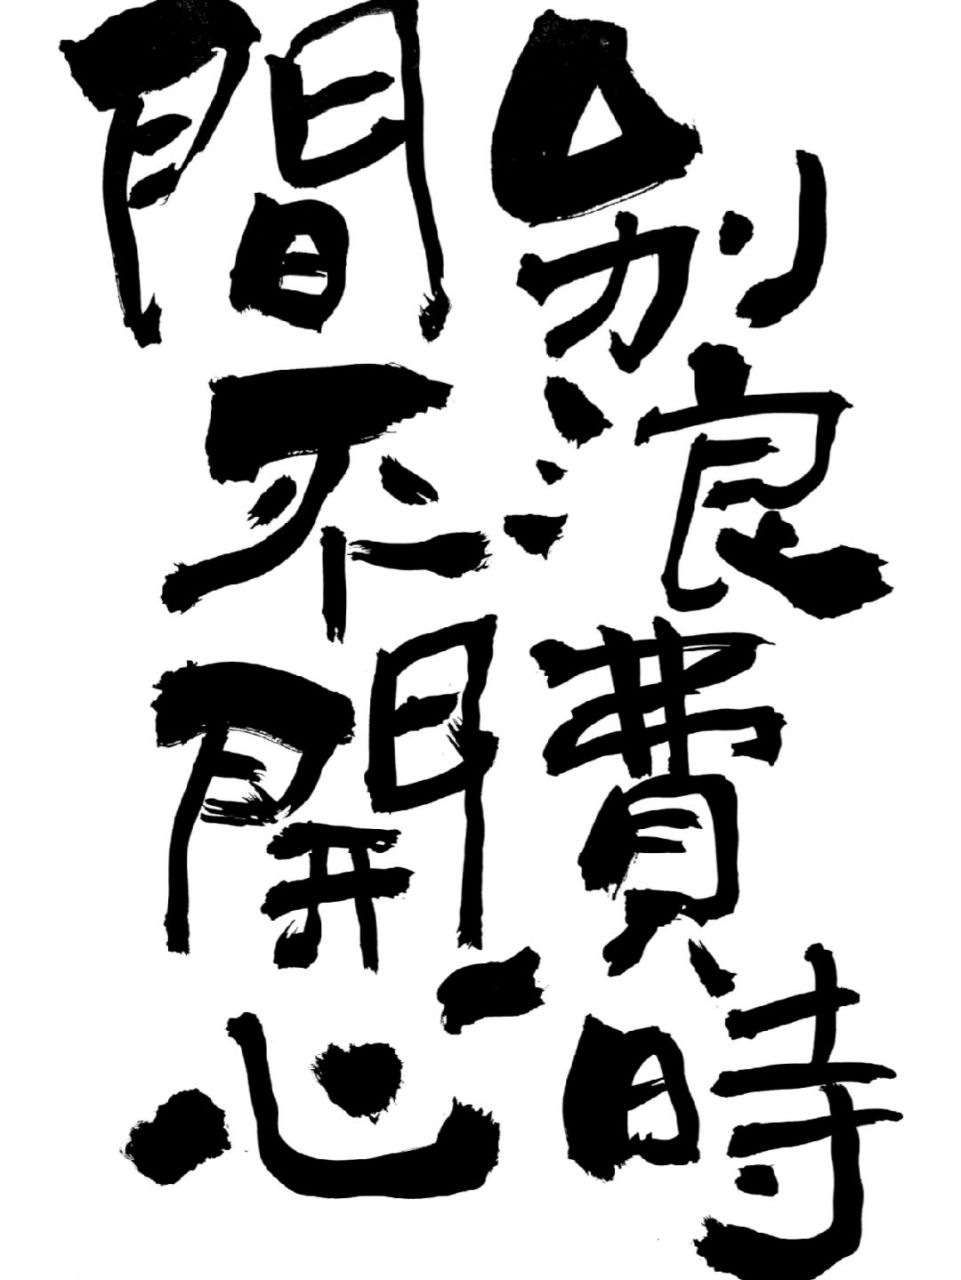 別浪費時
間不開心